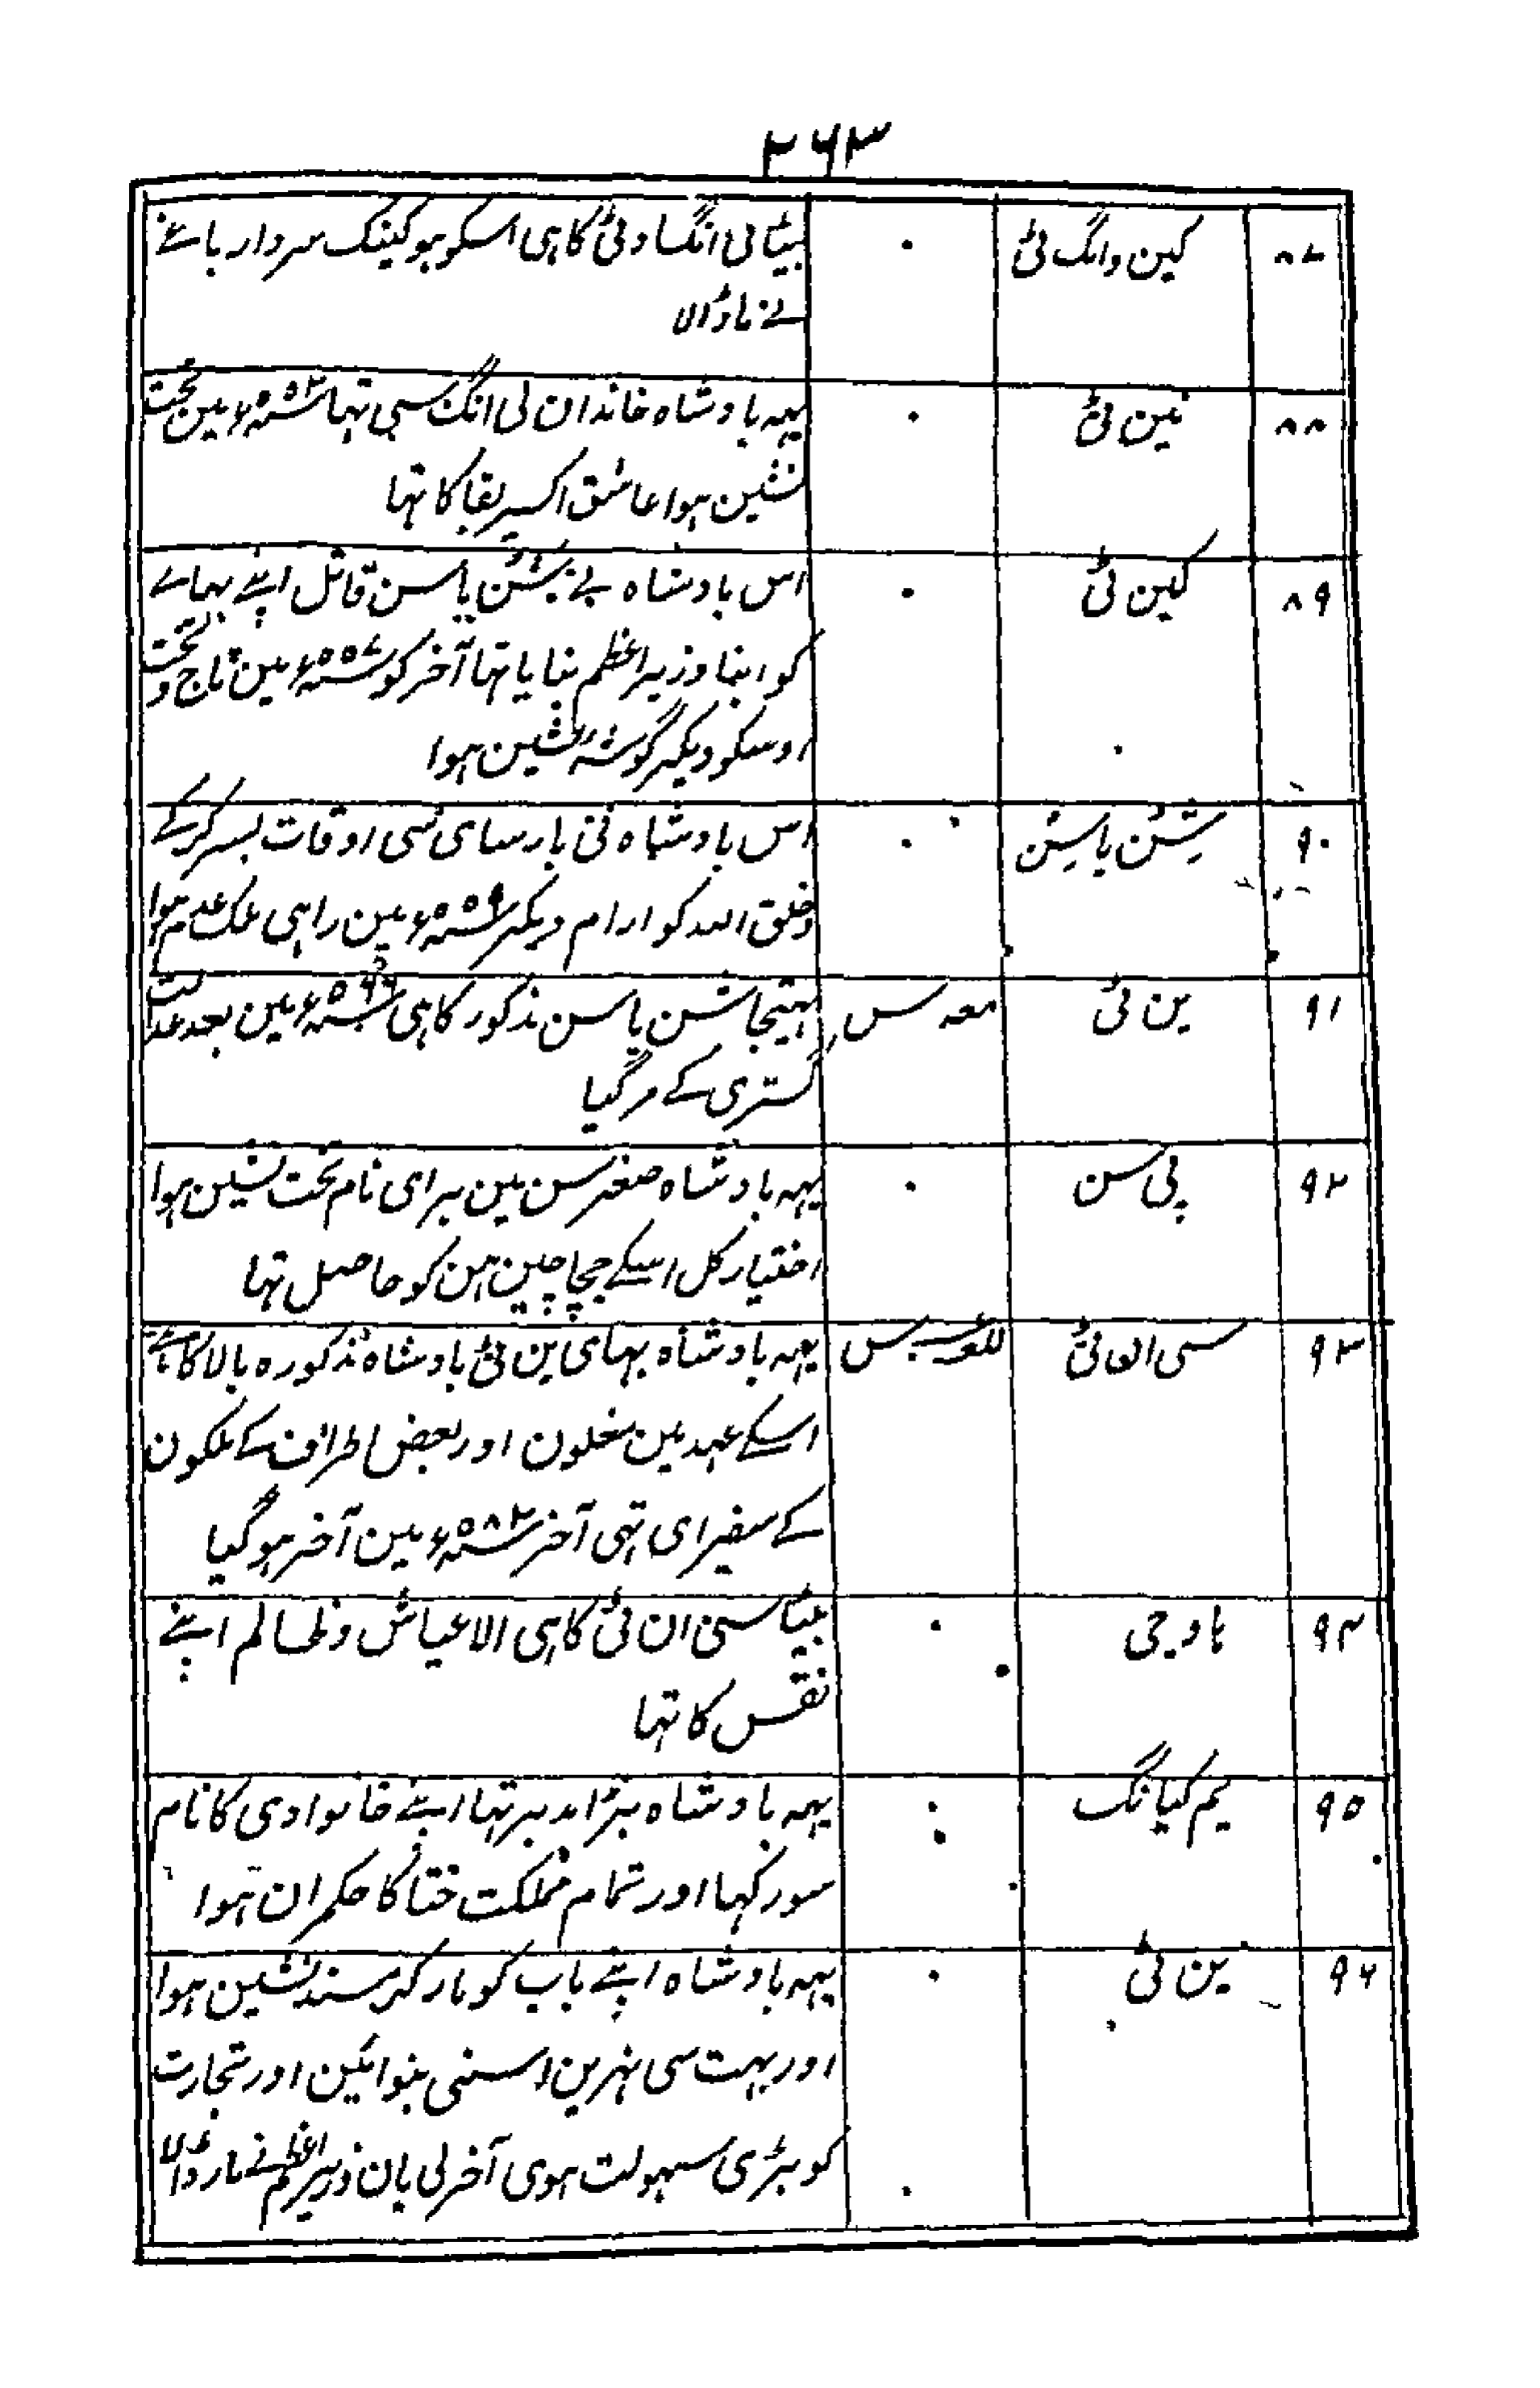 ۲۶۳
۸۷ کین وانگ ٹی ۰ بیٹا ئی انگ او ٹی کا ہی اسکو ہو کینک سردار باے
نے مار ڈالا
۸۸ نین ٹی ۰ یہہ بادشاہ خاندان لی انگ سی تہا ۵۵۳ء مین تخت
نشین ہوا عاشق اکسیر بقا کا تہا
۸۹ کین ٹی ۰ اس بادشاہ نے شن پاسن قاتل اپنے بہاے
کو اپنا وزیر اعظم بنایا تہا آخر کو ۵۵۷ء مین تاج و تخت
اوسکو دیکر گوشہ نشین ہوا
۹۰ شن پاسن ۰ اس بادشاہ نی پارسای سی اوقات بسر کرکے
و خلق اللہ کو ارام دیکر ۵۵۹ء مین راہی ملک عدم ہوا
۹۱ ین ٹی معہ س بہتیجا شن پاسن مذکور کا ہی ۵۶۶ء مین بعد عدالت
گستری کے مر گیا
۹۲ پی سن ۰ یہہ بادشاہ صغر سن مین برای نام تخت نشین ہوا
اختیار کل اسکے چچا چین ہن کو حاصل تہا
۹۳ سی ان ٹی س یہہ بادشاہ بہای ین ٹی بادشاہ مذکورہ بالا کا ہے
اسکے عہد مین مغلون اور بعض اطراف کے ملکون
کے سفیر ای تہی آخر ۵۸۲ء مین آخر ہو گیا
۹۴ ہاوچی ۰ بیٹا سی ان ٹی کا ہی الا عیاش و ظالم اپنے
نفس کا تہا
۹۵ یم کیانگ ۰ یہہ بادشاہ بڑا مدبر تہا اپنے خانوادی کا نام
سو رکہا اور تمام مملکت ختا کا حکمران ہوا
۹۶ ین ٹی ۰ یہہ بادشاہ اپنے باپ کو مار کر مسند نشین ہوا
اور بہت سی نہرین اسنی بنوائین اور تجارت
کو بڑی سہولت ہوی آخر لی پان وزیر اعظم نے مار ڈالا